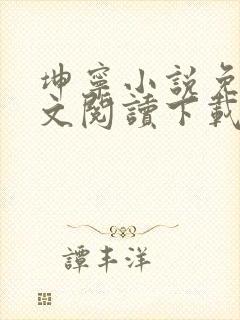 坤寧小說免
文閱讀下載
譚丰洋